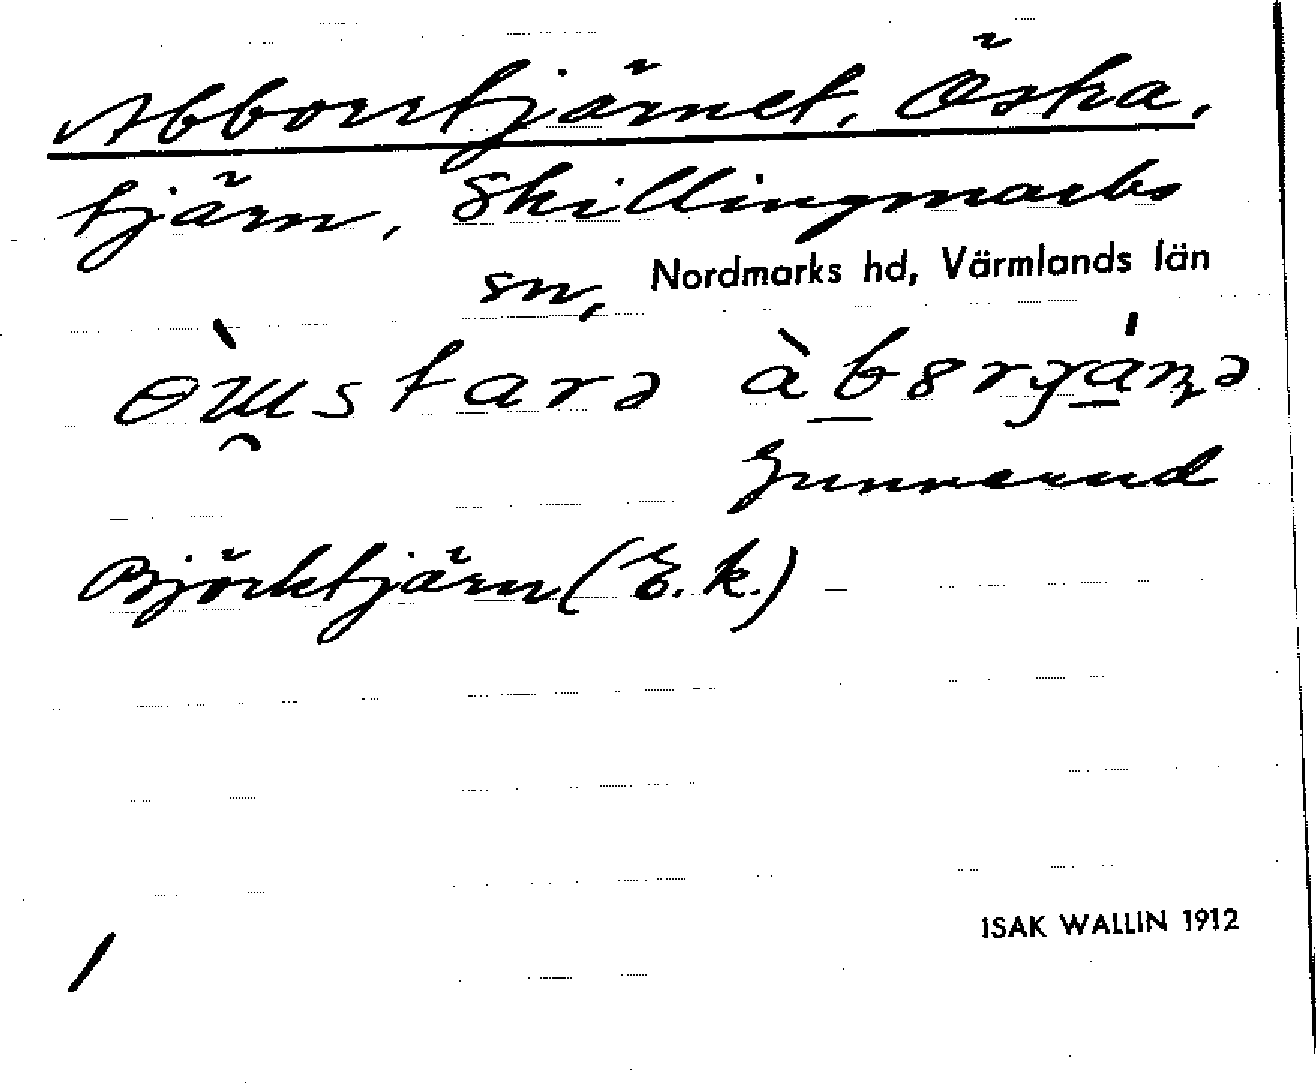 Abborrtjärnet, Östra,
tjärn, Skillingmarks
sn, Nordmarks hd, Värmlands län
Gunnerud
Björktjärn (E.k.)
ISAK WALLIN 1912
1